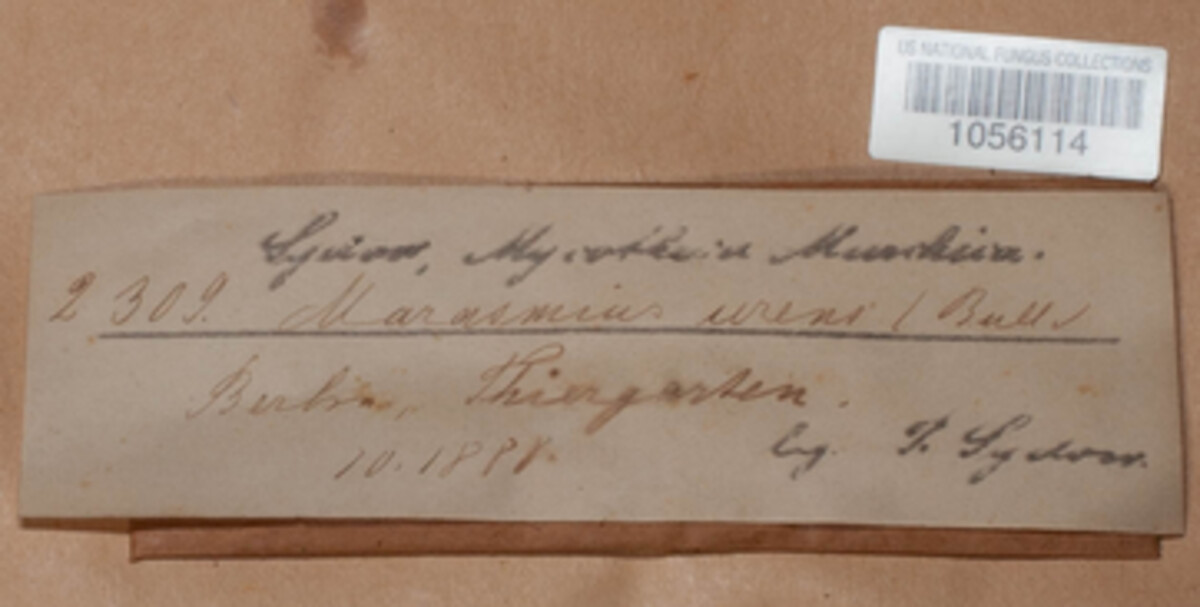 US NATIONAL FUNGUS COLLECTIONS
1056114
Sydow, Mycotheca Marchica.
2309. Marasmius urens (Bull.)
Berlin, Thiergarten.
10. 1888.
leg. P. Sydow.